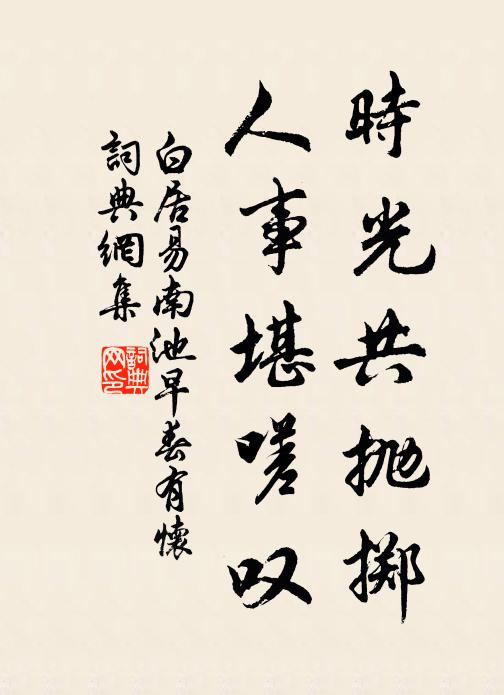 時光共抛擲
人事堪嗟叹
白居易南池早春有懷
詞典網集
詞典网印